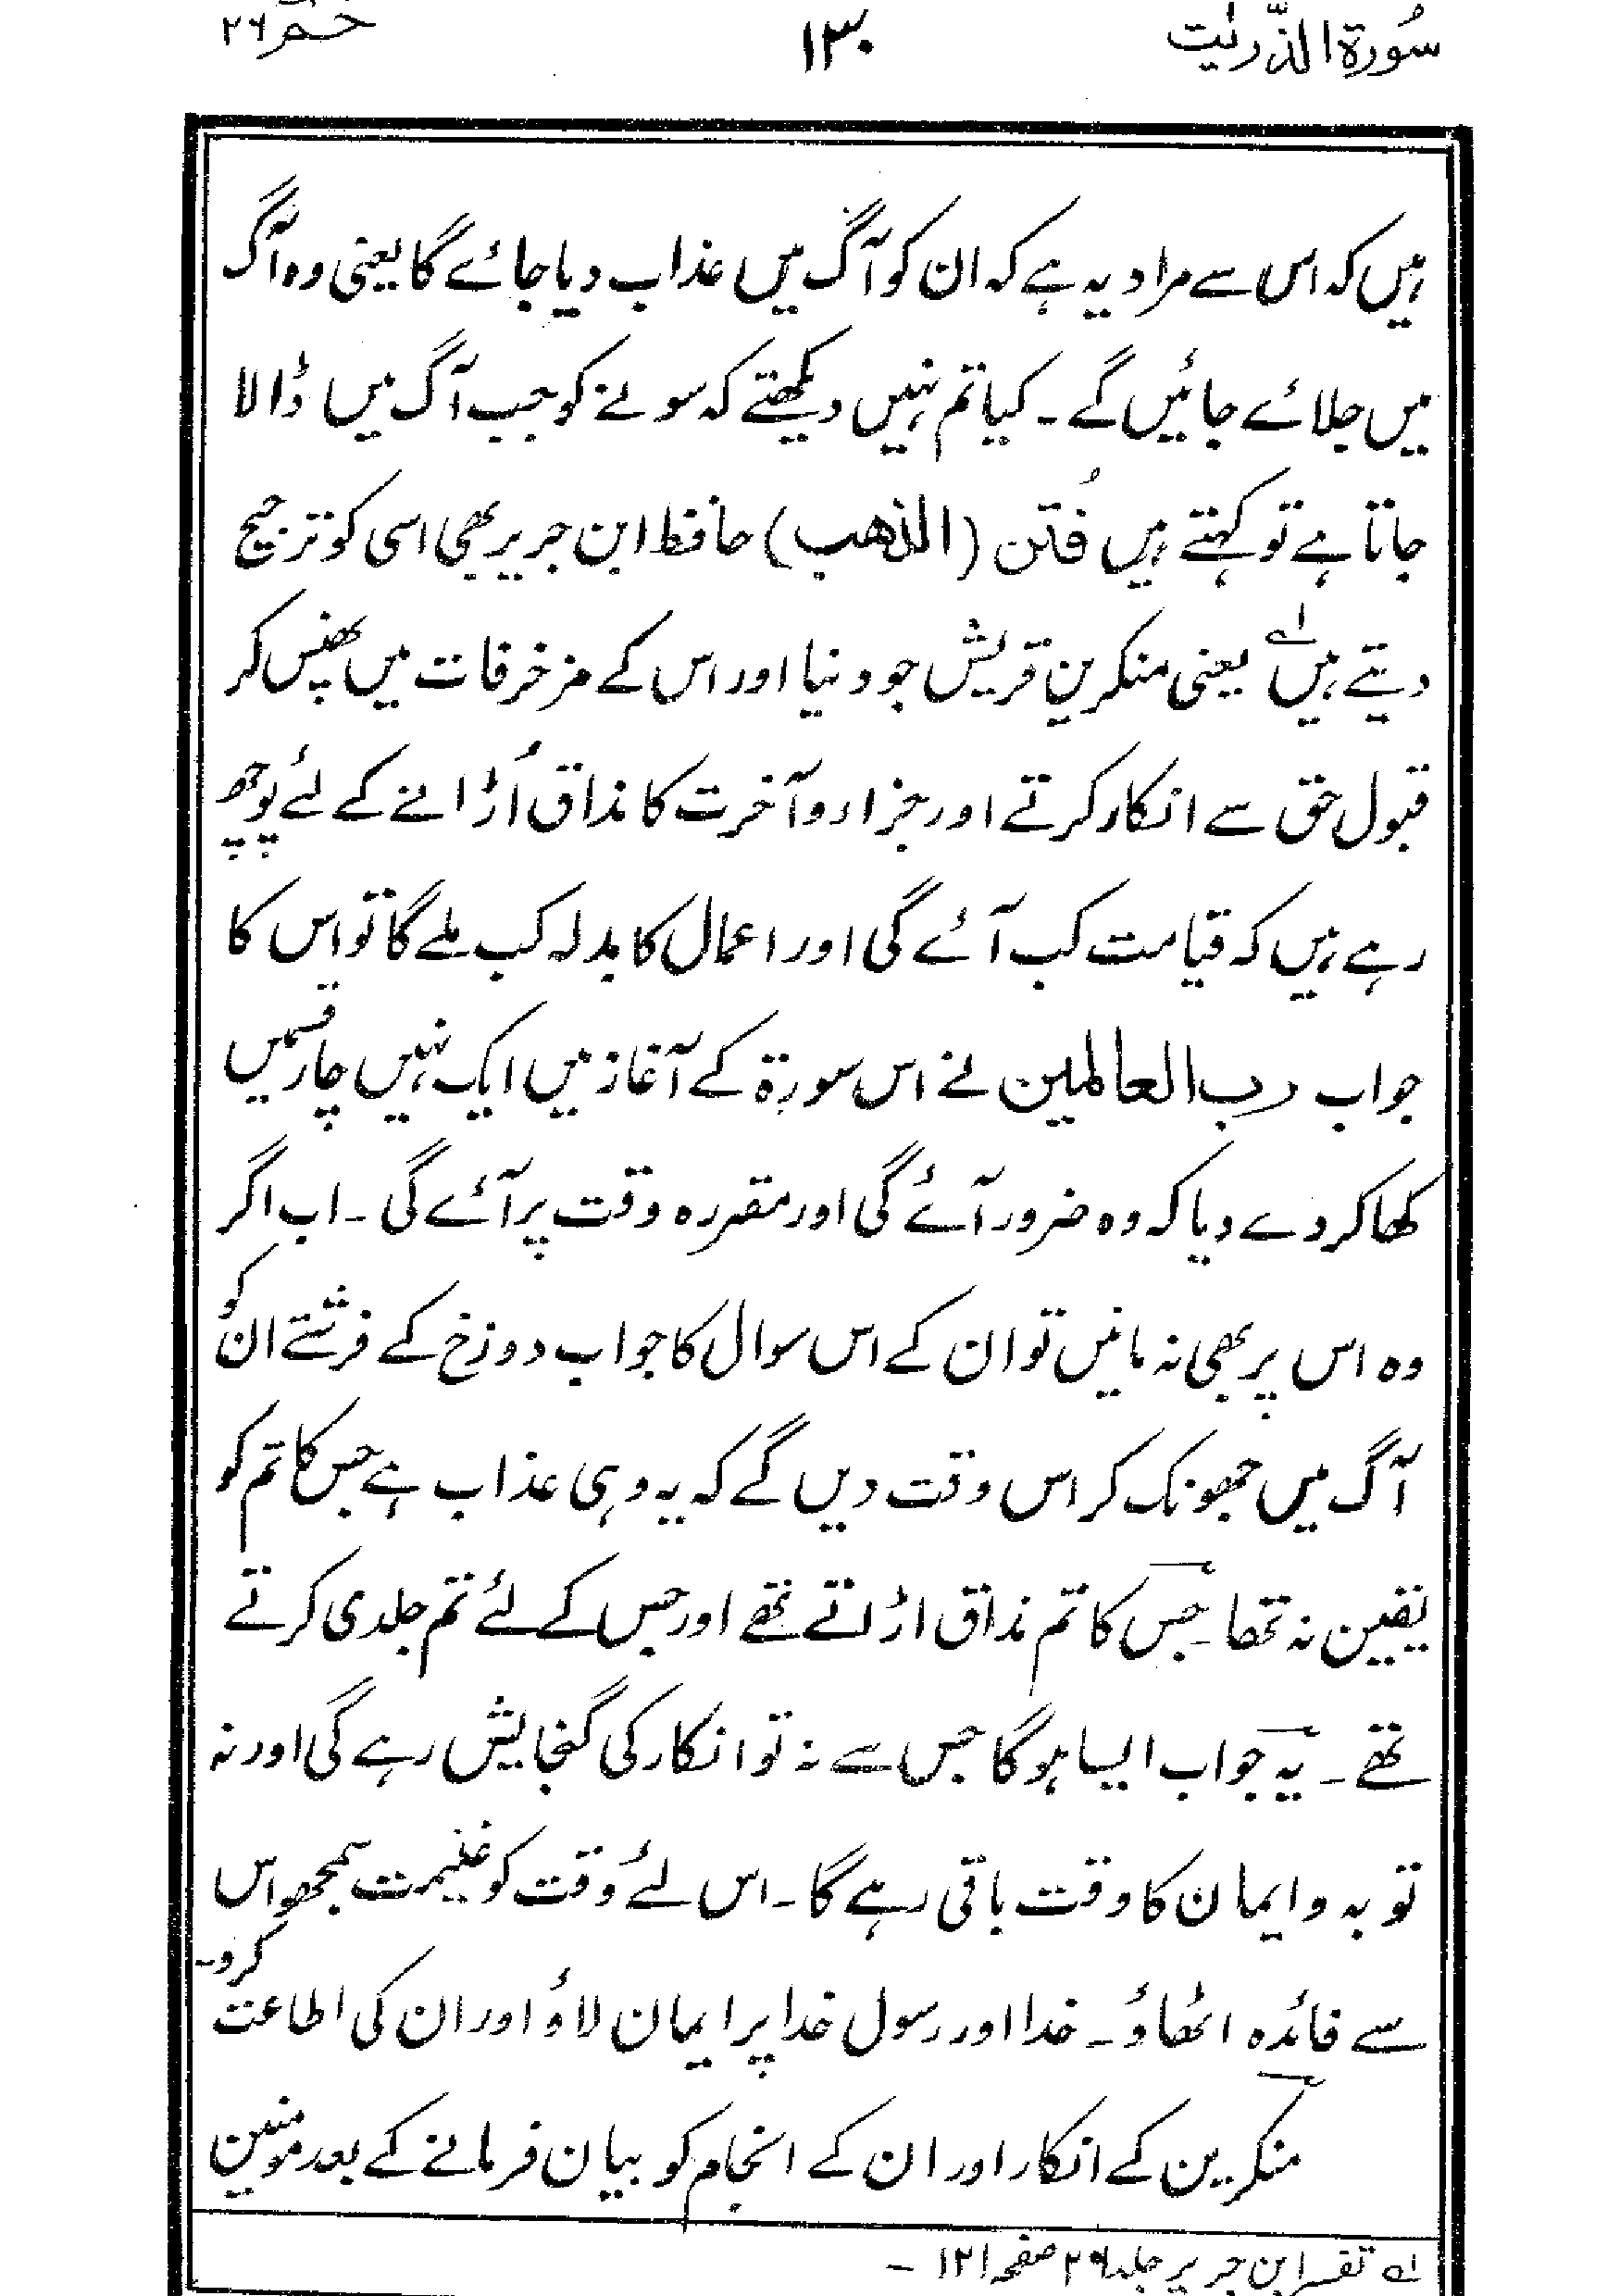 سُورة الذّٰریٰت ۱۳۰ حٰمٓ ۲۶
ہیں کہ اس سے مراد یہ ہے کہ ان کو آگ میں عذاب دیا جائے گا یعنی وہ آگ
میں جلائے جائیں گے ۔ کیا تم نہیں دیکھتے کہ سونے کو جب آگ میں ڈالا
جاتا ہے تو کہتے ہیں فُتن (الذھب) حافظ ابن جریر بھی اسی کو ترجیح
دیتے ہیں ۱؎ یعنی منکرینِ قریش جو دنیا اور اس کے مزخرفات میں پھنس کر
قبول حق سے انکار کرتے اور جزاء و آخرت کا مذاق اُڑانے کے لئے پوچھ
رہے ہیں کہ قیامت کب آئے گی اور اعمال کا بدلہ کب ملے گا تو اس کا
جواب رب العالمین نے اس سورۃ کے آغاز میں ایک نہیں چار قسمیں
کھا کر دے دیا کہ وہ ضرور آئے گی اور مقررہ وقت پر آئے گی ۔ اب اگر
وہ اس پر بھی نہ مانیں تو ان کے اس سوال کا جواب دوزخ کے فرشتے ان کو
آگ میں جھونک کر اس وقت دیں گے کہ یہ وہی عذاب ہے جس کا تم کو
یقین نہ تھا ۔ جس کا تم مذاق اڑاتے تھے اور جس کے لئے تم جلدی کرتے
تھے ۔ یہ جواب ایسا ہوگا جس سے نہ تو انکار کی گنجایش رہے گی اور نہ
توبہ و ایمان کا وقت باقی رہے گا ۔ اس لئے وقت کو غنیمت سمجھو اس
سے فائدہ اٹھاؤ ۔ خدا اور رسول خدا پر ایمان لاؤ اور ان کی اطاعت کرو ۔
منکرین کے انکار اور ان کے انجام کو بیان فرمانے کے بعد مومنین
۱؎ تفسیر ابن جریر جلد ۲۶ صفحہ ۱۲۱ ۔